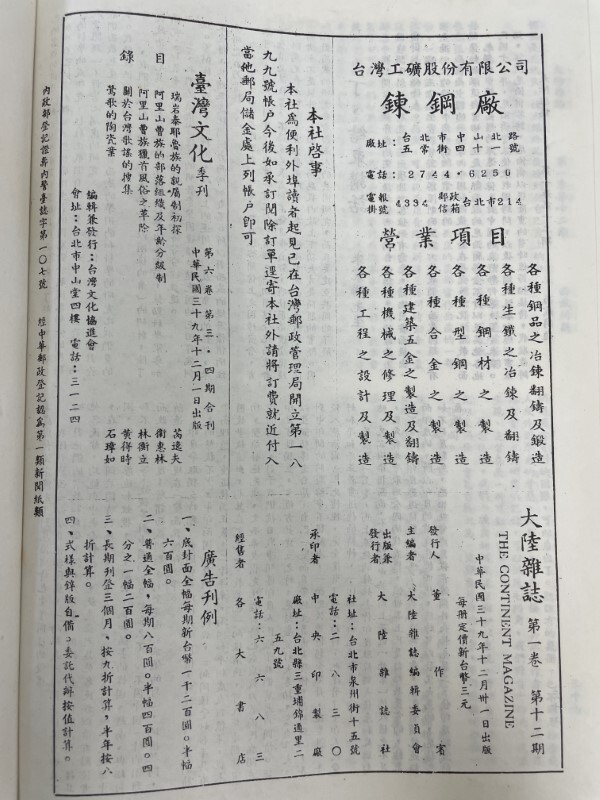 台灣工礦股份有限公司
鍊鋼廠
廠址：台北市中山北路
五常街四十一號
電話：2744．6250
電報掛號 4394 郵政信箱 台北市214
營業項目
各種鋼品之冶鍊翻鑄及鍛造
各種生鐵之冶鍊及翻鑄
各種鋼材之製造
各種型鋼之製造
各種合金之製造
各種建築五金之製造及翻鑄
各種機械之修理及製造
各種工程之設計及製造
本社啓事
本社為便利外埠讀者起見已在台灣郵政管理局開立第一八
九九號帳户今後如承訂閱除訂單逕寄本社外請將訂費就近付入
當地郵局儲金處上列帳户即可
臺灣文化 季刊
第六卷第三．四期合刊
中華民國三十九年十二月一日出版
目錄
瑞岩泰耶魯族的親屬制初探 衞惠林
阿里山曹族的部落組織及年齡分級制 林衡立
阿里山曹族獵首風俗之革除
關於台灣歌謠的搜集 黃得時
鶯歌的陶瓷業 石璋如
編輯兼發行：台灣文化協進會
會址：台北市中山堂四樓 電話：三一二四
大陸雜誌 第一卷 第十二期
THE CONTINENT MAGAZINE
中華民國三十九年十二月卅一日出版
每册定價新台幣三元
發行人 董作賓
主編者 大陸雜誌編輯委員會
出版兼發行者 大陸雜誌社
社址：台北市泉州街十五號
電話：二八三〇
承印者 中央印製廠
廠址：台北縣三重埔錦通里二
五九號
電話：六六八三
經售者 各大書店
廣告刊例
一、底封面全幅每期新台幣一千二百圓。半幅
六百圓。
二、普通全幅，每期八百圓。半幅四百圓。四
分之一幅二百圓。
三、長期刊登三個月，按九折計算，半年按八
折計算。
四、式樣與鋅版自備。委託代辦按值計算。
內政部登記證京內警臺誌字第一〇七號 經中華郵政登記認為第一類新聞紙類